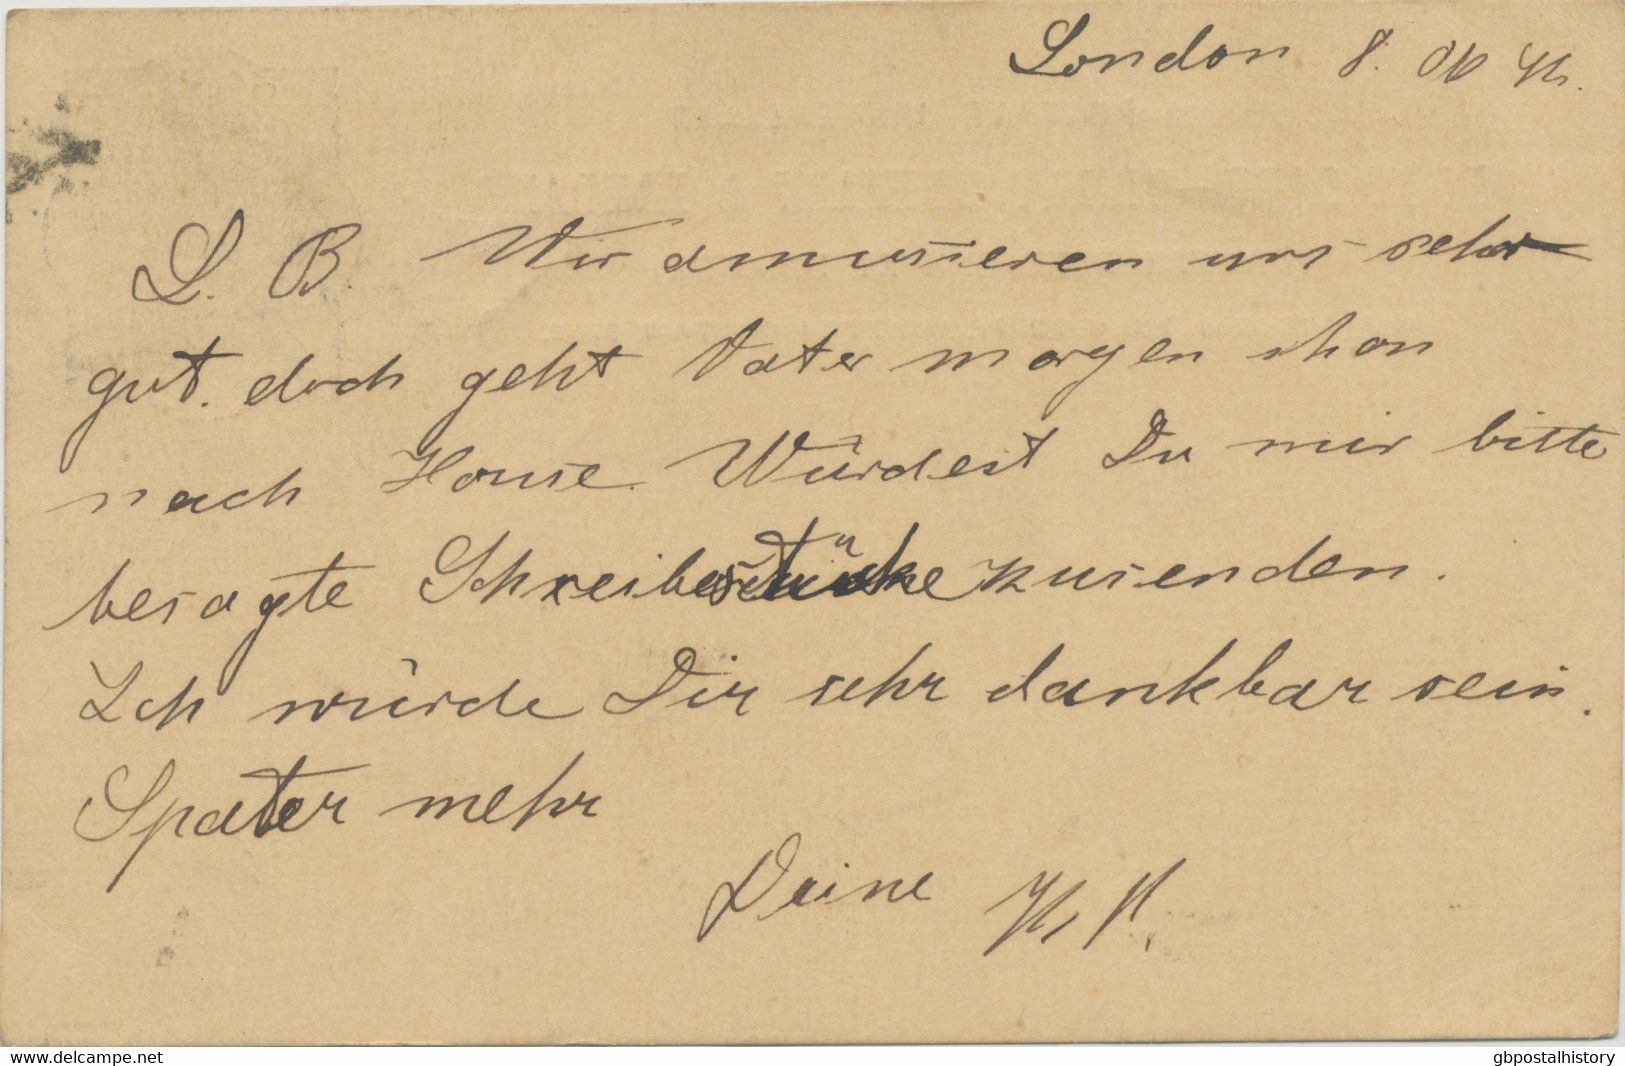 London 8.
L. B. Wir amusieren uns sehr
gut. doch geht Vater morgen schon
nach Hause. Würdest Du mir bitte
besagte zusenden.
Ich würde Dir sehr dankbar sein.
Spater mehr
Deine
www.delcampe.net
gbpostalhistory